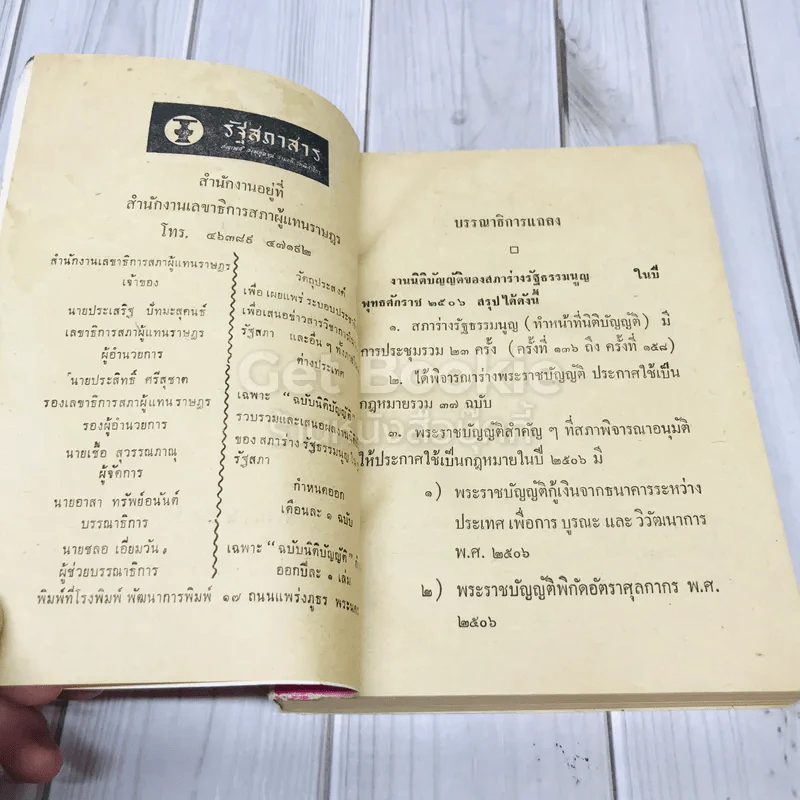 รัฐสภาสาร
สำนักงานอยู่ที่
สำนักงานเลขาธิการสภาผู้แทนราษฎร
โทร. ๔๖๓๘๙ ๔๗๑๙๒
สำนักงานเลขาธิการสภาผู้แทนราษฎร
เจ้าของ
นายประเสริฐ ปัทมะสุคนธ์
เลขาธิการสภาผู้แทนราษฎร
ผู้อำนวยการ
นายประสิทธิ์ ศรีสุชาต
รองเลขาธิการสภาผู้แทนราษฎร
รองผู้อำนวยการ
นายเชื้อ สุวรรณภาณุ
ผู้จัดการ
นายอาสา ทรัพย์อนันต์
บรรณาธิการ
นายชลอ เอี่ยมวัน
ผู้ช่วยบรรณาธิการ
วัตถุประสงค์
เพื่อเผยแพร่ระบอบ
เพื่อเสนอข่าวสารวิชาการ
รัฐสภา และอื่น ๆ
ต่างประเทศ
เฉพาะ "ฉบับนิติบัญญัติ"
รวบรวมและเสนอผลงาน
ของสภาร่างรัฐธรรมนูญ
รัฐสภา
กำหนดออก
เดือนละ ๑ ฉบับ
เฉพาะ "ฉบับนิติบัญญัติ"
ออกปีละ ๑ เล่ม
พิมพ์ที่โรงพิมพ์ พัฒนาการพิมพ์ ๑๗ ถนนแพร่งภูธร
บรรณาธิการแถลง
งานนิติบัญญัติของสภาร่างรัฐธรรมนูญ ในปี
พุทธศักราช ๒๕๐๖ สรุปได้ดังนี้
๑. สภาร่างรัฐธรรมนูญ (ทำหน้าที่นิติบัญญัติ) มี
การประชุมรวม ๒๓ ครั้ง (ครั้งที่ ๑๓๖ ถึง ครั้งที่ ๑๕๘)
๒. ได้พิจารณาร่างพระราชบัญญัติ ประกาศใช้เป็น
กฎหมายรวม ๓๗ ฉบับ
๓. พระราชบัญญัติสำคัญ ๆ ที่สภาพิจารณาอนุมัติ
ให้ประกาศใช้เป็นกฎหมายในปี ๒๕๐๖ มี
๑) พระราชบัญญัติกู้เงินจากธนาคารระหว่าง
ประเทศ เพื่อการ บูรณะ และ วิวัฒนาการ
พ.ศ. ๒๕๐๖
๒) พระราชบัญญัติพิกัดอัตราศุลกากร พ.ศ.
๒๕๐๖